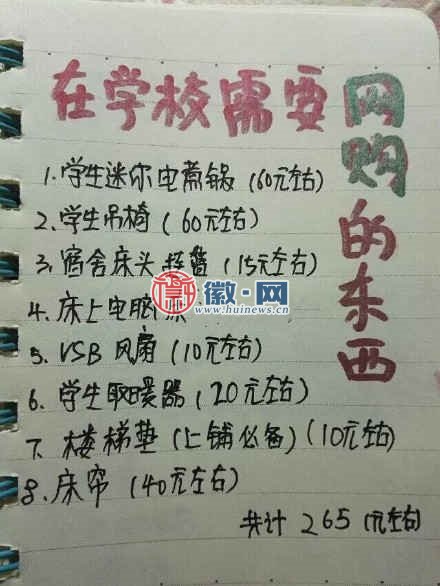 在学校需要网购的东西
1.学生迷你电煮锅(60元左右)
2.学生吊椅(60元左右)
3.宿舍床头挂篮(15元左右)
徽·网
www.huinews.cn
4.床上电脑
5.VSB风扇(10元左右)
6.学生取暖器(20元左右)
7.楼梯垫(上铺必备)(10元左右)
8.床帘(40元左右)
共计265(元左右)